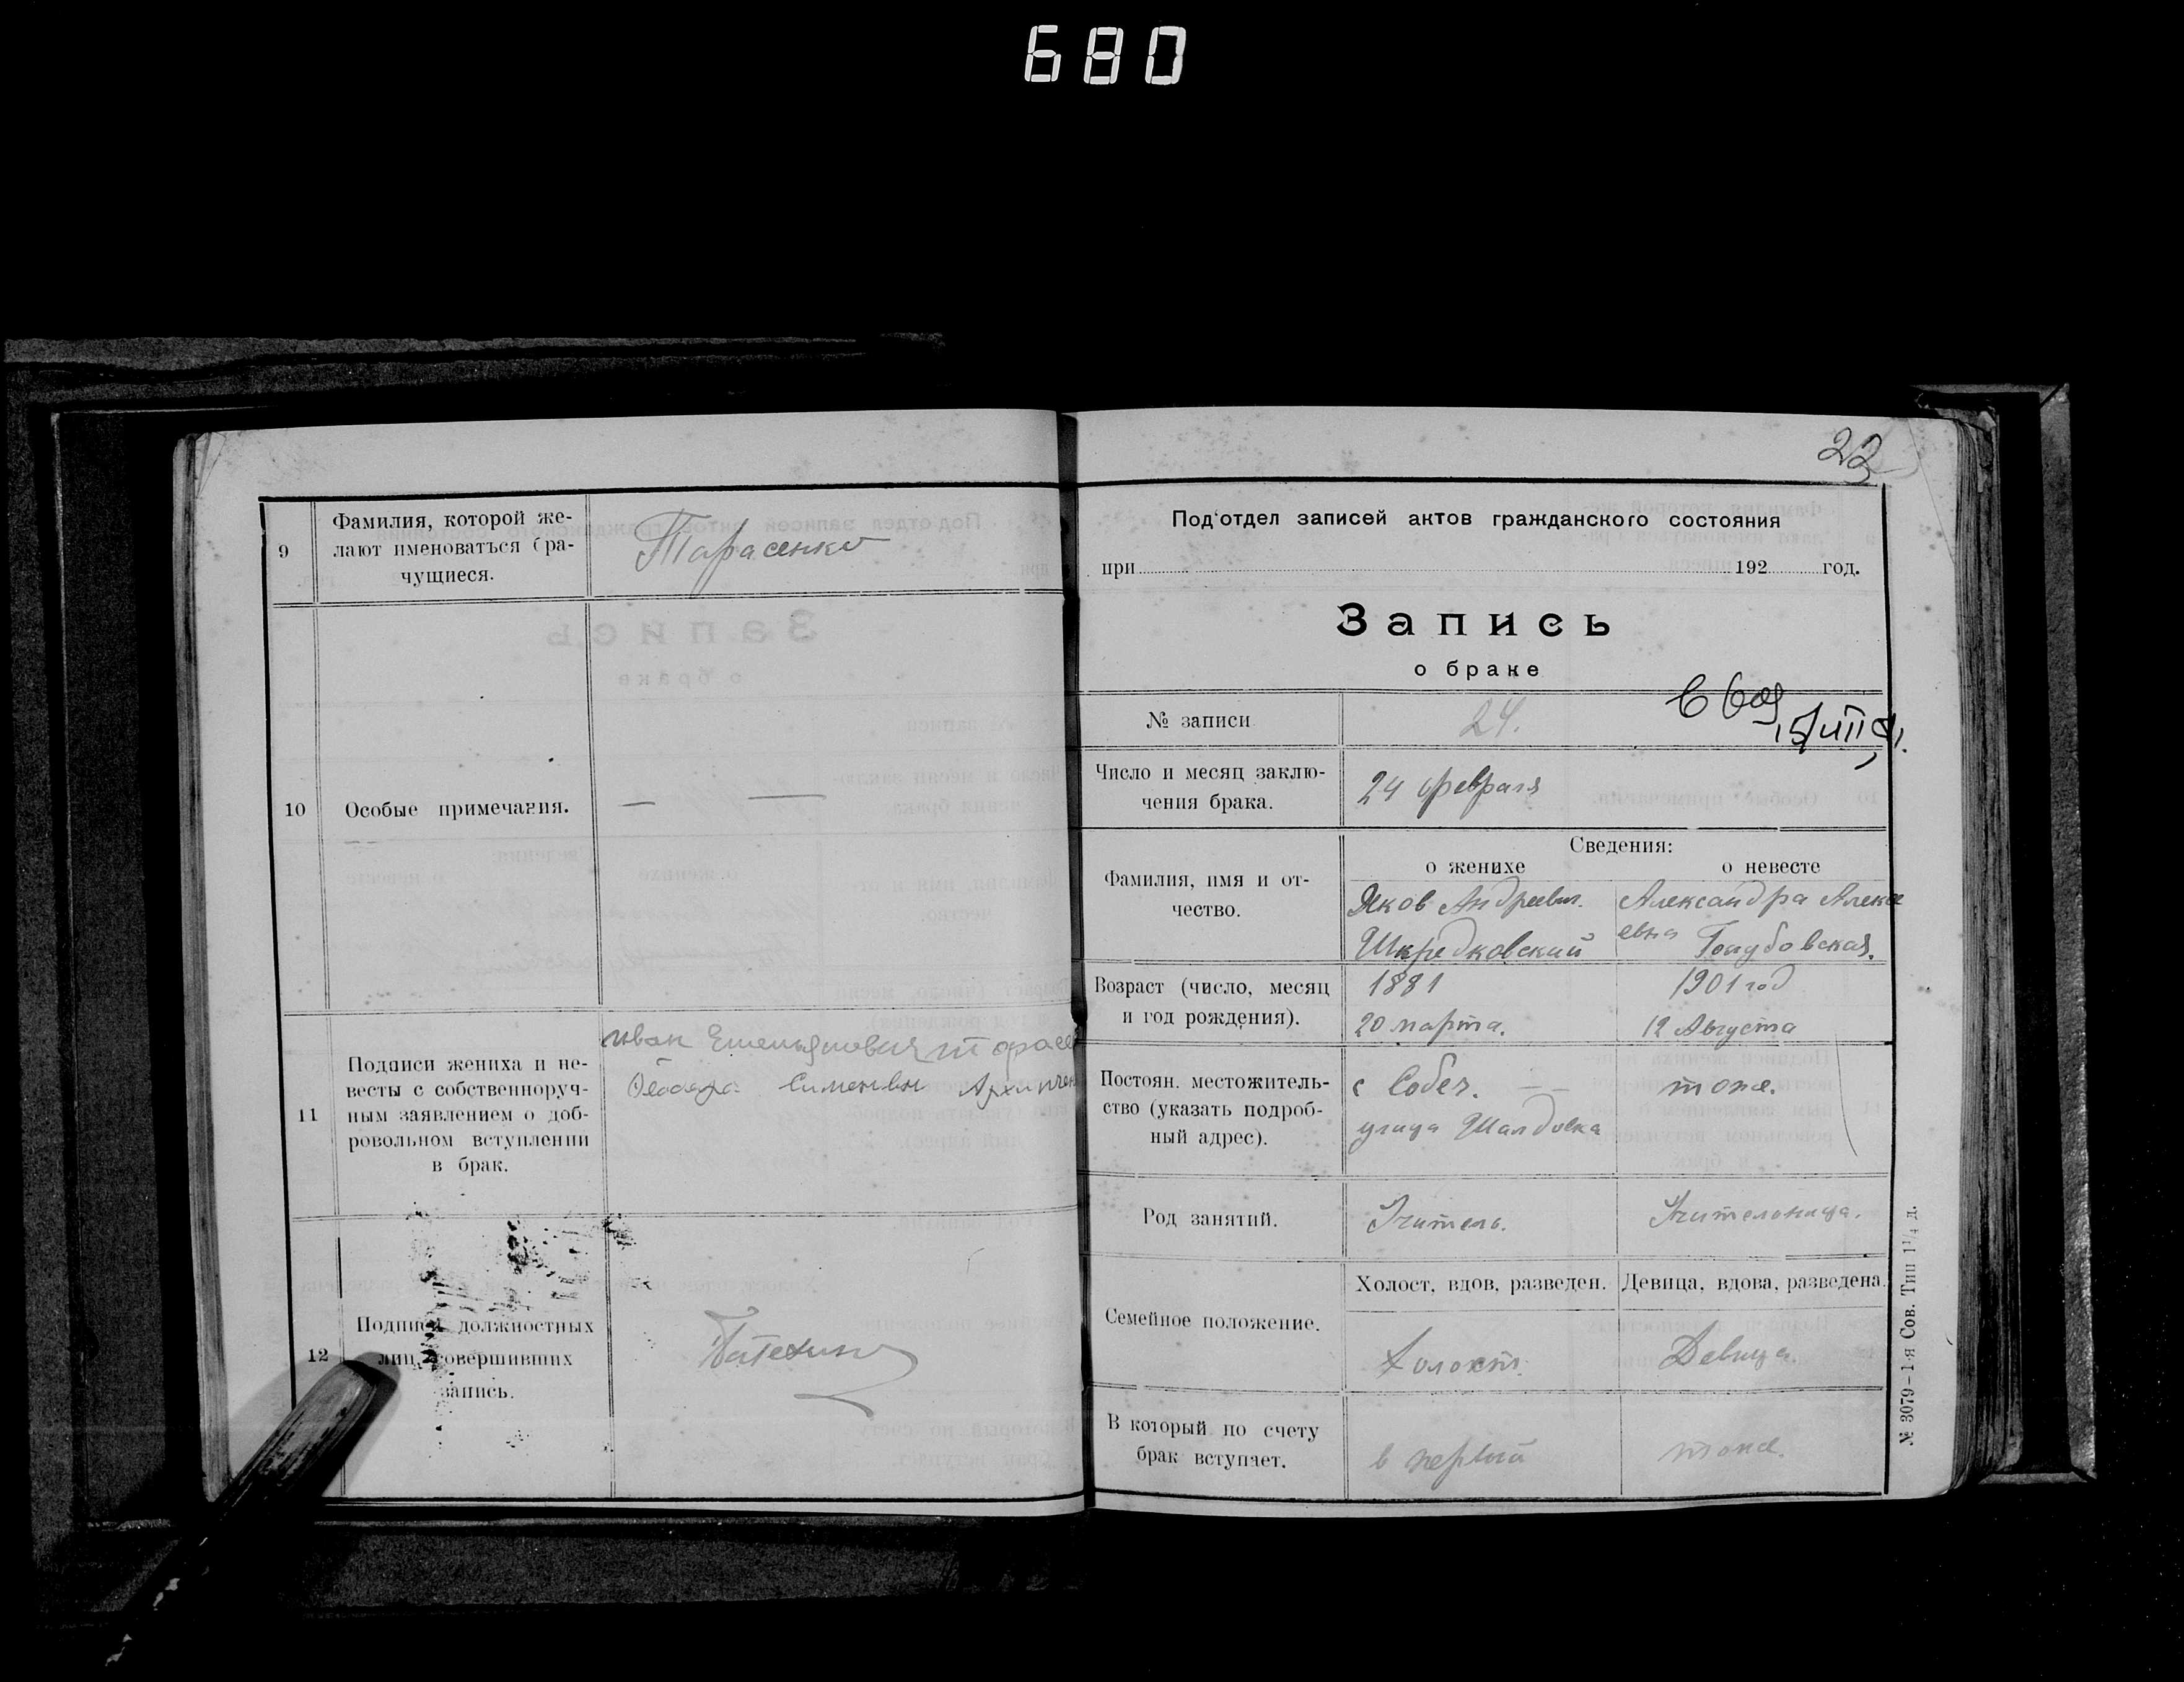 680
9
Фамилия, которой же-
лают именоваться бра-
чущиеся.
Тарасенко
10
Особые примечания.
— —
11
Подписи жениха и не-
весты с собственноруч-
ным заявлением о доб-
ровольном вступлении
в брак.
иван
12
Подписи должностных
лиц, совершивших
запись.
22
Под'отдел записей актов гражданского состояния
при 192 год.
Запись
о браке
№ записи
24.
Число и месяц заклю-
чения брака.
24 февраля
Сведения:
о женихе
о невесте
Фамилия, имя и от-
чество.
Яков Андреевич.
Шкредковский
Александра Алексе
евна Голубовская.
Возраст (число, месяц
и год рождения).
1881
20 марта.
1901 год
12 Августа
Постоян. местожитель-
ство (указать подроб-
ный адрес).
с Собеч.
улица
тоже.
Род занятий.
Учитель.
Учительница.
Семейное положение.
Холост, вдов, разведен.
Девица, вдова, разведена.
Холост.
Девица.
В который по счету
брак вступает.
в первый
тоже.
№ 3079—1-я Сов. Тип 1¹/₄ д.